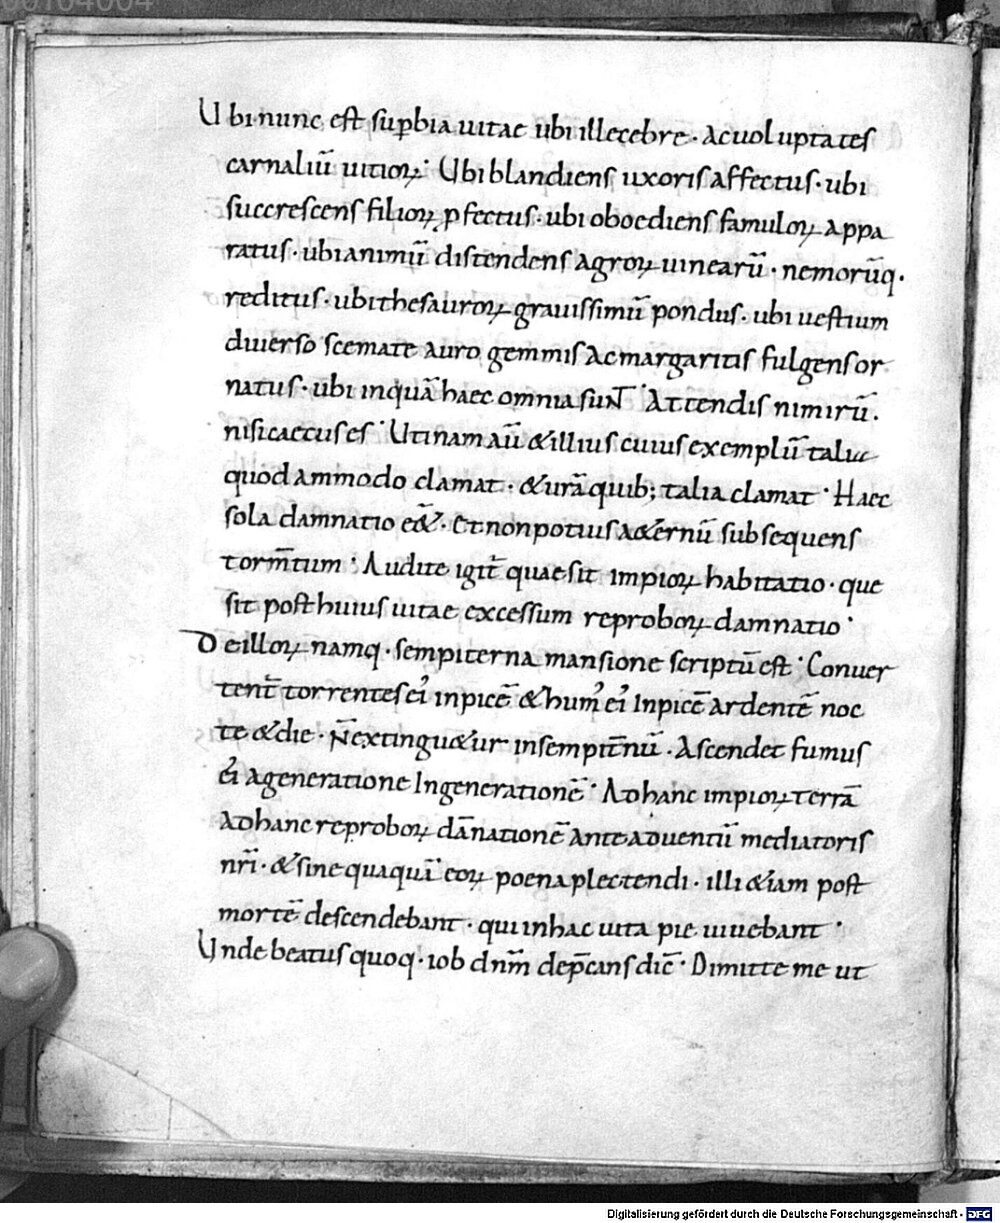 Ubi nunc est suꝑbia uitae ubi illecebre · ac uoluptates
carnaliū uitioꝝ· Ubi blandiens uxoris affectus · ubi
succrescens filioꝝ ꝓfectus · ubi oboediens famuloꝝ appa
ratus · ubi animū distendens agroꝝ uinearū · nemorūq·
reditus · ubi thesauroꝝ grauissimū pondus · ubi uestium
diuerso scemate auro gemmis ac margaritis fulgens or
natus · ubi inquā haec omnia sunt · Attendis nimirū ·
nisi caecus es · Utinam aū &illius cuius exemplū
quod ammodo clamat · &urā quib; talia clamat · Haec
sola damnatio e&̄ · Et non potius a&ernū subsequens
torm̄tum · Audite igit̄ quae sit impioꝝ habitatio · que
sit post huius uitae excessum reproboꝝ damnatio ·
De illoꝝ namq · sempiterna mansione scriptū est · Conuer
tent̄ torrentes ei᾽ in picē &hum᾽ ei᾽ In picē ardentē noc
te &die · N̄ extingu&ur in sempit̄nū · Ascendet fumus
ei᾽ a generatione In generationē · Ad hanc impioꝝ terrā
Ad hanc reproboꝝ dānationē ante aduentū mediatoris
nr̄i · &sine quaquā eoꝝ poena plectendi · illi &iam post
mortē descendebant · qui in hac uita pie uiuebant ·
Unde beatus quoq · iob dn̄m dep̄cans dic̄ · Dimitte me ut
Digitalisierung gefördert durch die Deutsche Forschungsgemeinschaft - DFG